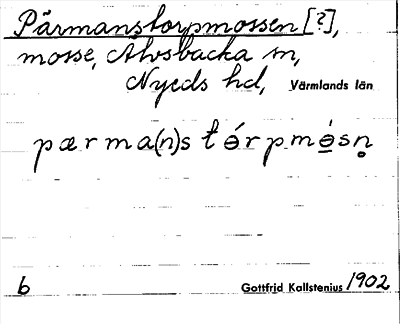 Pärmanstorpmossen [?],
mosse, Alvsbacka sn,
Nyeds hd, Värmlands län
pærma(n)s tǿrpmǿ̱sn̥
b Gottfrid Kallstenius 1902